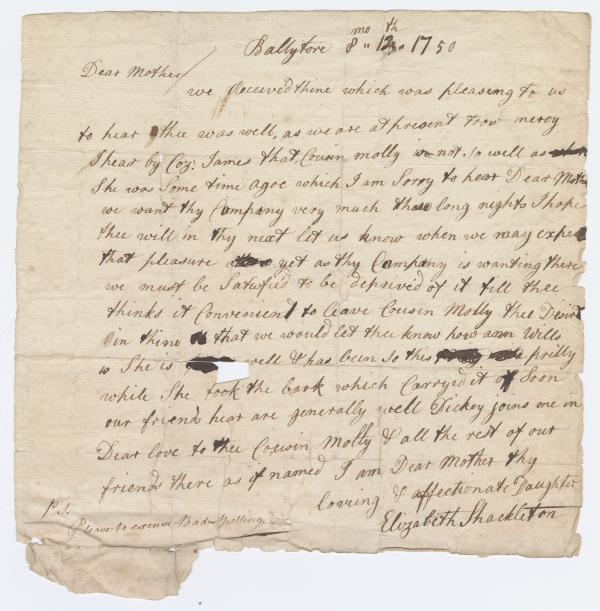 Ballytore 8 mo " 12 th 1750
Dear Mother
we Received thine which was pleasing to us
to hear thee was well, as we are at present Trow mercy
I hear by Coz: James that Cousin molly is not so well as
She was Some time agoe which I am Sorry to hear Dear Mothe
we want thy Company very much these long nights I hope
thee will in thy next let us know when we may expect
that pleasure yet as thy Company is wanting there
we must be Satisfied to be deprived of it till thee
thinks it Convenient to leave Cousin Molly thee Desird
in thine that we would let thee know how ann Wills
is She is well & has been So this pritty
while She took the bark which Carryed it of Soon
our friends hear are generally well Dickey joins me in
Dear love to thee Cousin Molly & all the rest of our
friends there as if named I am Dear Mother thy
loving & affectionate Daughter
Elizabeth Shackleton
P.S.
Please to excuse Bad Spelling